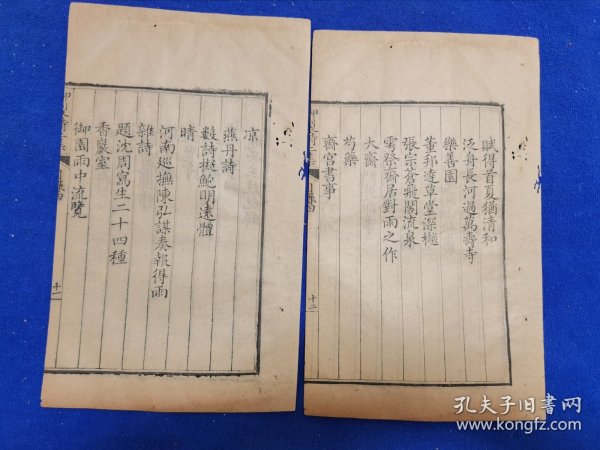 賦得首夏猶清和
泛舟長河過萬壽寺
樂善園
董邦達草堂深樾
張宗蒼飛閣流泉
雩祭齋居對雨之作
大齋
芍藥
齋宮書事
十二
凉
燕丹詩
數詩擬鮑明遠體
晴
河南巡撫陳弘謀奏報得雨
雜詩
題沈周寫生二十四種
香嵓室
御園雨中流覽
十一
孔夫子旧書网
www.kongfz.com